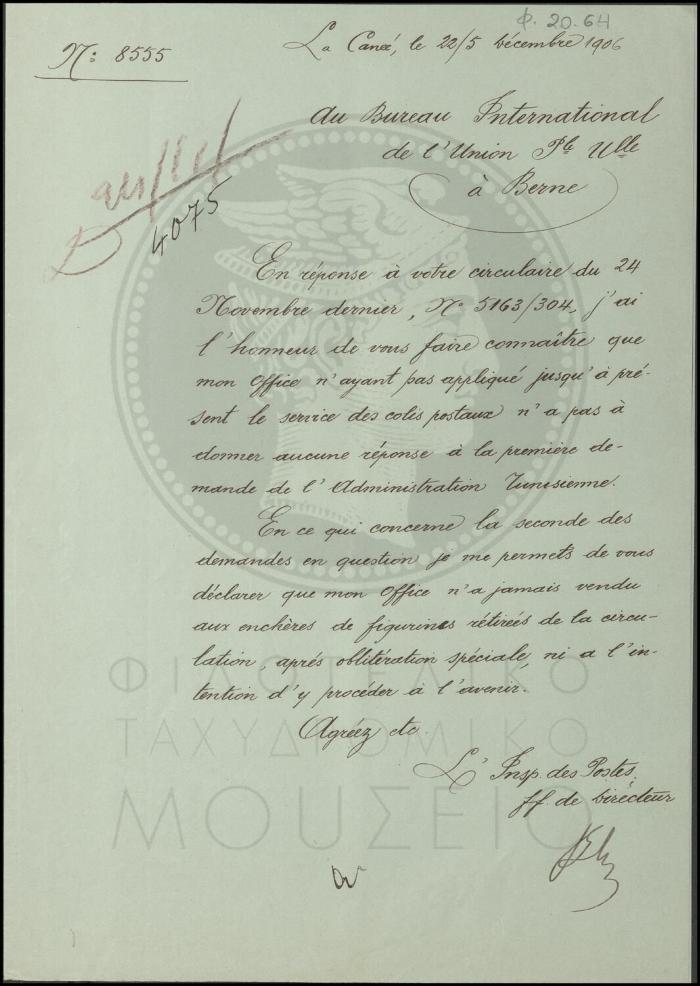 Φ. 20.64
Nº 8555
La Canée, le 22/5 Décembre 1906
Au Bureau International
de l'Union Ple Ulle
à Berne
4075
En réponse à votre circulaire du 24
Novembre dernier, Nº 5163/304, j'ai
l'honneur de vous faire connaître que
mon Office n'ayant pas appliqué jusqu'à pré-
sent le service des colis postaux n'a pas à
donner aucune réponse à la première de-
mande de l'Administration Tunisienne.
En ce qui concerne la seconde des
demandes en question je me permets de vous
déclarer que mon Office n'a jamais vendu
aux enchères de figurines rétirées de la circu-
lation, aprés oblitération spéciale, ni a l'in-
tention d'y procéder à l'avenir.
Agréez etc.
L'Insp. des Postes,
ff. de Directeur
ΦΙΛΟΤΕΛΙΚΟ
ΤΑΧΥΔΡΟΜΙΚΟ
ΜΟΥΣΕΙΟ